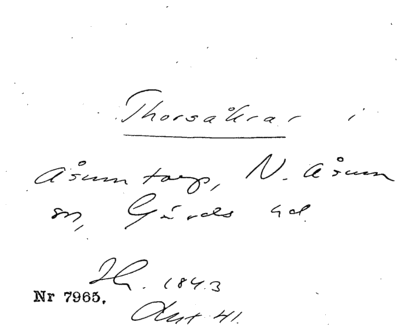 Thorsåkrar i
Åsumtorp, N. Åsum
sn, Gärds hd.
1843
Nr 7965.
41.